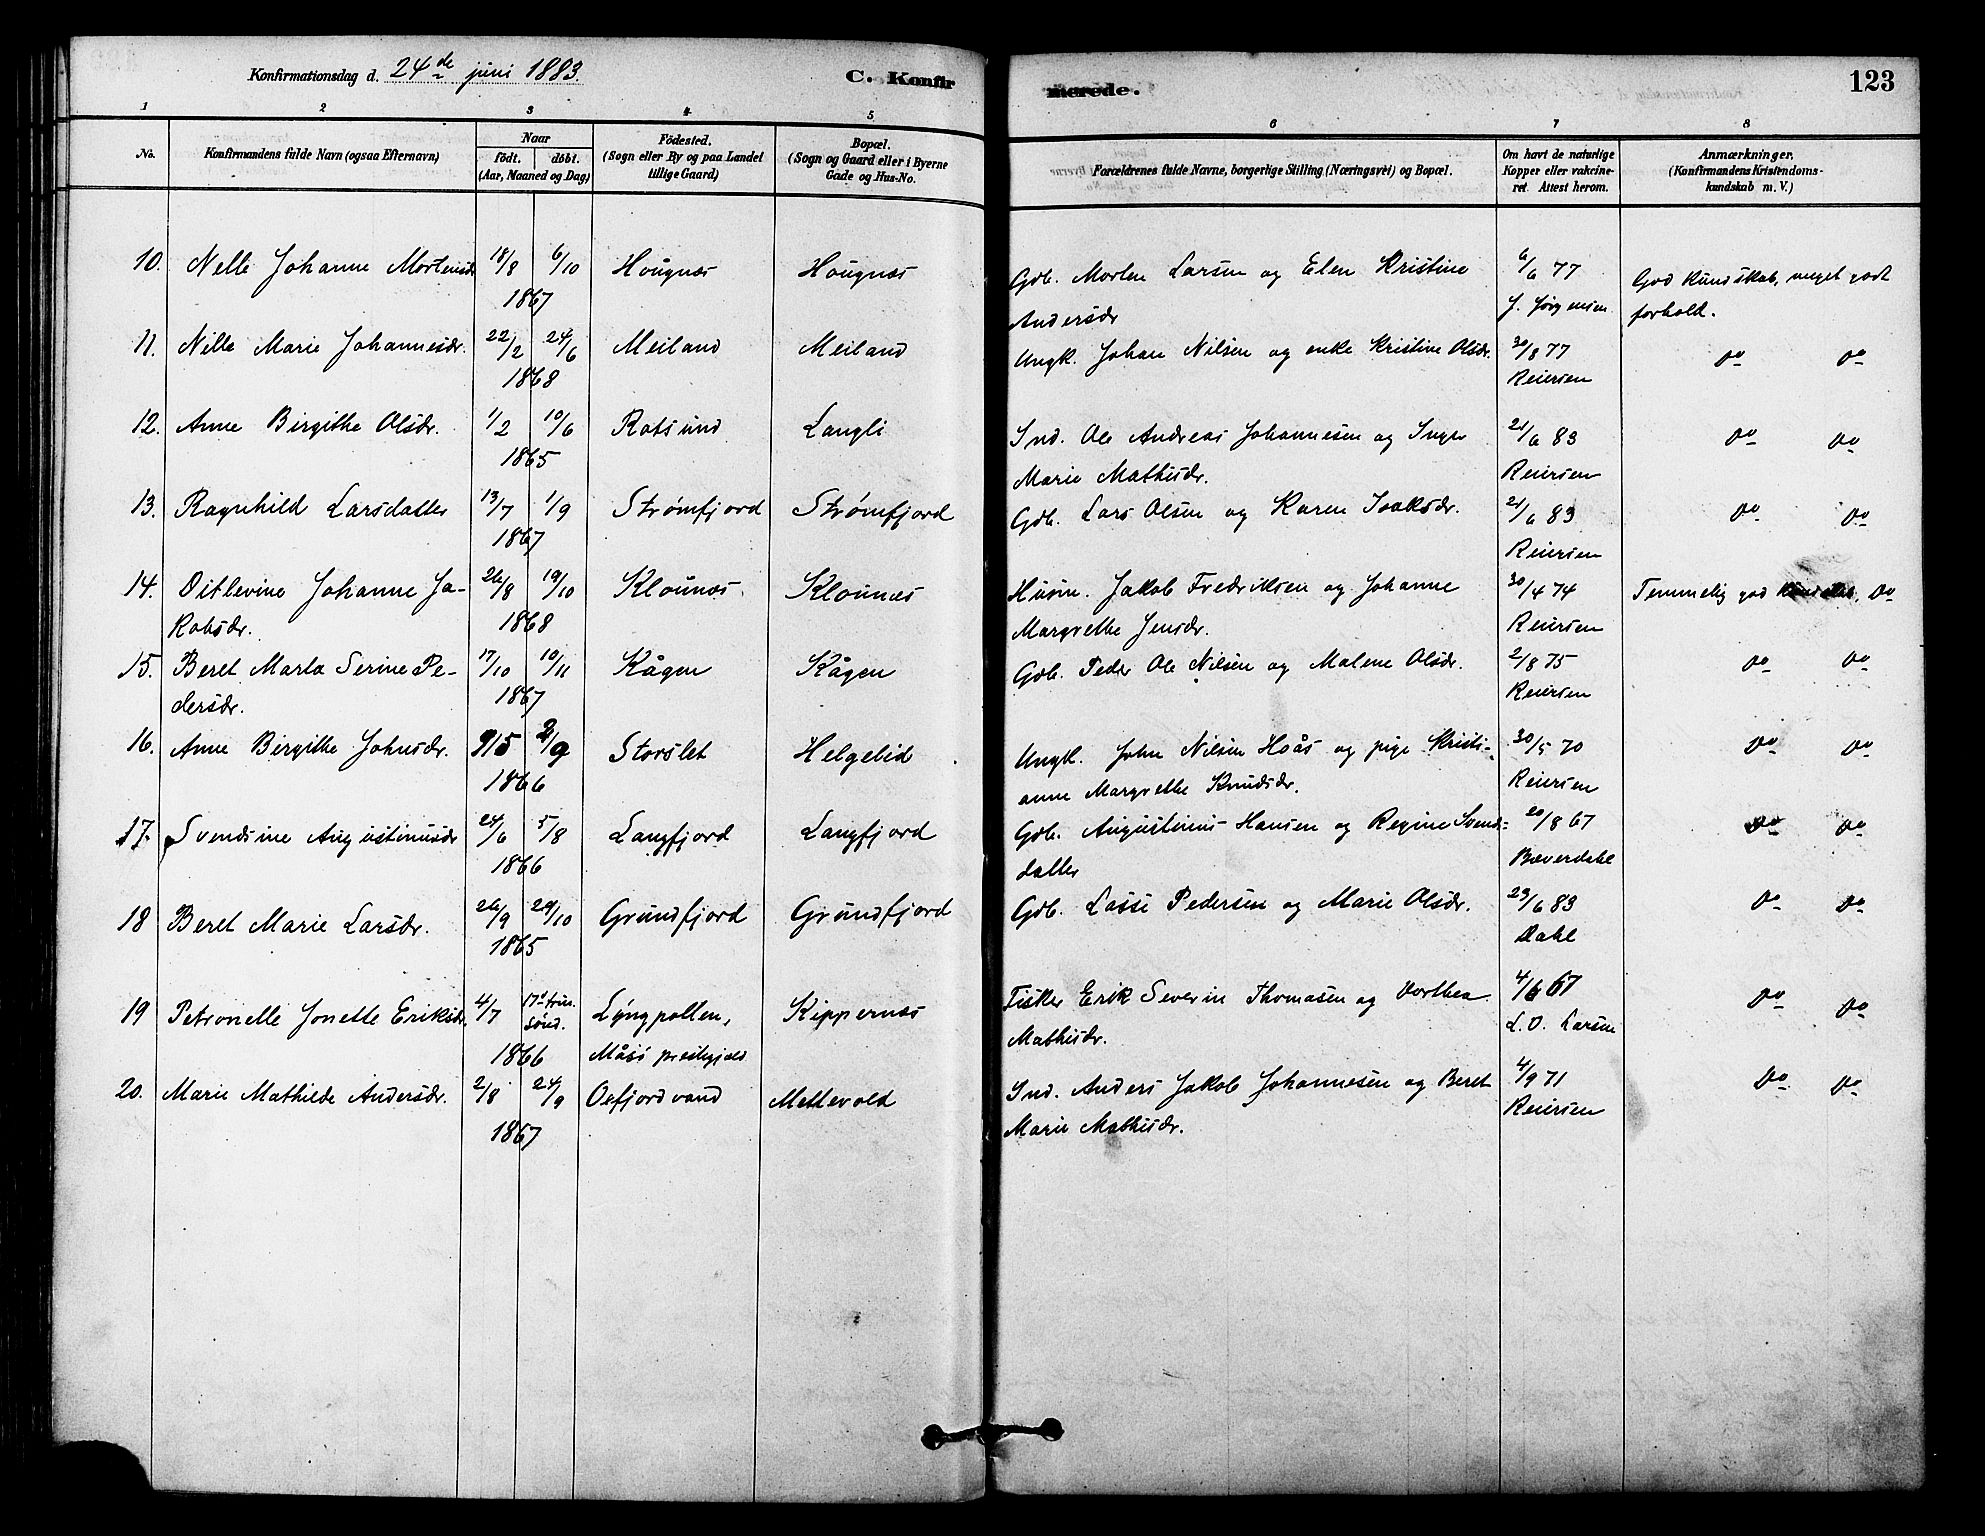 Konfirmationsdag d. 24de juni 1883.
C. Konfirmerede.
123
1 2 3 4 5 6 7 8
No.
Konfirmandens fulde Navn (ogsaa Efternavn)
Naar
födt. döbt.
(Aar, Maaned og Dag)
Födested.
(Sogn eller By og paa Landet
tillige Gaard)
Bopæl.
(Sogn og Gaard eller i Byerne
Gade og Hus-No.
Forældrenes fulde Navne, borgerlige Stilling (Næringsvei) og Bopæl.
Om havt de naturlige
Kopper eller vakcine-
ret Attest herom.
Anmærkninger.
(Konfirmandens Kristendoms-
kundskab m. V.)
10. Nelle Johanne Mortensdr 18/8 6/10 Hougnæs Hougnæs Gdb. Morten Larsen og Elen Kristine 6/6 77 God kundskab, meget godt
1867 Andersdr J. Jørgensen forhold.
11. Nille Marie Johannesdr. 22/2 24/6 Meiland Meiland Ungk. Johan Nilsen og enke Kristine Olsdr. 30/8 77 Do Do
1868 Reiersen
12. Anne Birgithe Olsdr. 1/2 10/6 Rotsund Langli Ind. Ole Andreas Johannesen og Inger 21/6 83 Do Do
1865 Marie Mathisdr. Reiersen
13. Ragnhild Larsdatter 13/7 1/9 Strømfjord Strømfjord Gdb. Lars Olsen og Karen Isaksdr. 21/6 83 Do Do
1867 Reiersen
14. Ditlevine Johanne Ja- 26/8 19/10 Klounæs Klounæs Husm. Jakob Fredriksen og Johanne 30/4 74 Temmelig god kundskab, Do
kobsdr. 1868 Margrethe Jensdr. Reiersen
15. Beret Marta Serine Pe- 17/10 10/11 Kågen Kågen Gdb. Peder Ole Nilsen og Malene Olsdr. 2/8 75 Do Do
dersdr. 1867 Reiersen
16. Anne Birgithe Johnsdr. 9/5 2/9 Storslet Helgelid Ungk. John Nilsen Hoås og pige Kristi- 30/5 70 Do Do
1866 anne Margrethe Knudsdr. Reiersen
17. Svendsine Augustinusdr 24/6 5/8 Langfjord Langfjord Gdb. Augustinus Hansen og Regine Svends- 20/8 67 Do Do
1866 datter Bæverdahl
18 Beret Marie Larsdr. 26/9 29/10 Grundfjord Grundfjord Gdb. Lasse Pedersen og Marie Olsdr. 23/6 83 Do Do
1865 Dahl
19 Petronelle Jonette Eriksdr. 4/7 17d trin. Lyngpollen, Kippernæs Fisker Erik Severin Thomasen og Dorthea 4/6 67 Do Do
sønd.
1866 Måsø prestegjeld Mathisdr. L. O. Larsen
20. Marie Mathilde Andersdr. 2/8 24/9 Oxfjordvand Mettevold Ind. Anders Jakob Johannesen og Beret 4/9 71 Do Do
1867 Marie Mathisdr. Reiersen